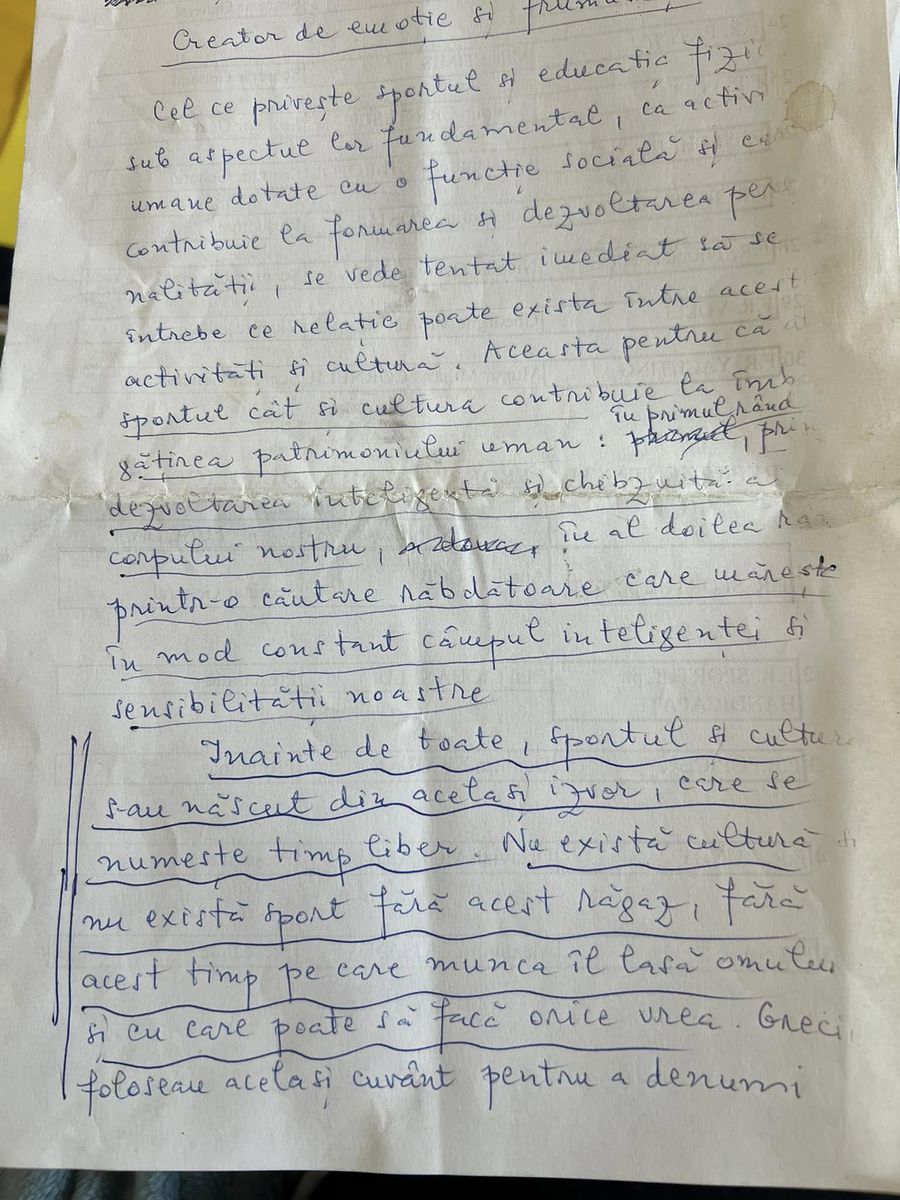 Creator de emoție și frumu
Cel ce privește sportul și educatia fizic
sub aspectul lor fundamental, ca activi
umane dotate cu o funcție socială și ca
contribuie la formarea și dezvoltarea per
nalității, se vede tentat imediat să se
întrebe ce relație poate exista între acest
activități și cultură. Aceasta pentru că at
sportul cât și cultura contribuie la îmb
în primul rând
gățirea patrimoniului uman : , prin
dezvoltarea inteligentă și chibzuită a
corpului nostru, în al doilea râ
printr-o căutare răbdătoare care mărește
în mod constant câmpul inteligenței și
sensibilității noastre
Inainte de toate, sportul și cultur
s-au născut din același izvor, care se
numește timp liber. Nu există cultură și
nu există sport fără acest răgaz, fără
acest timp pe care munca îl lasă omului
și cu care poate să facă orice vrea. Greci
foloseau același cuvânt pentru a denumi